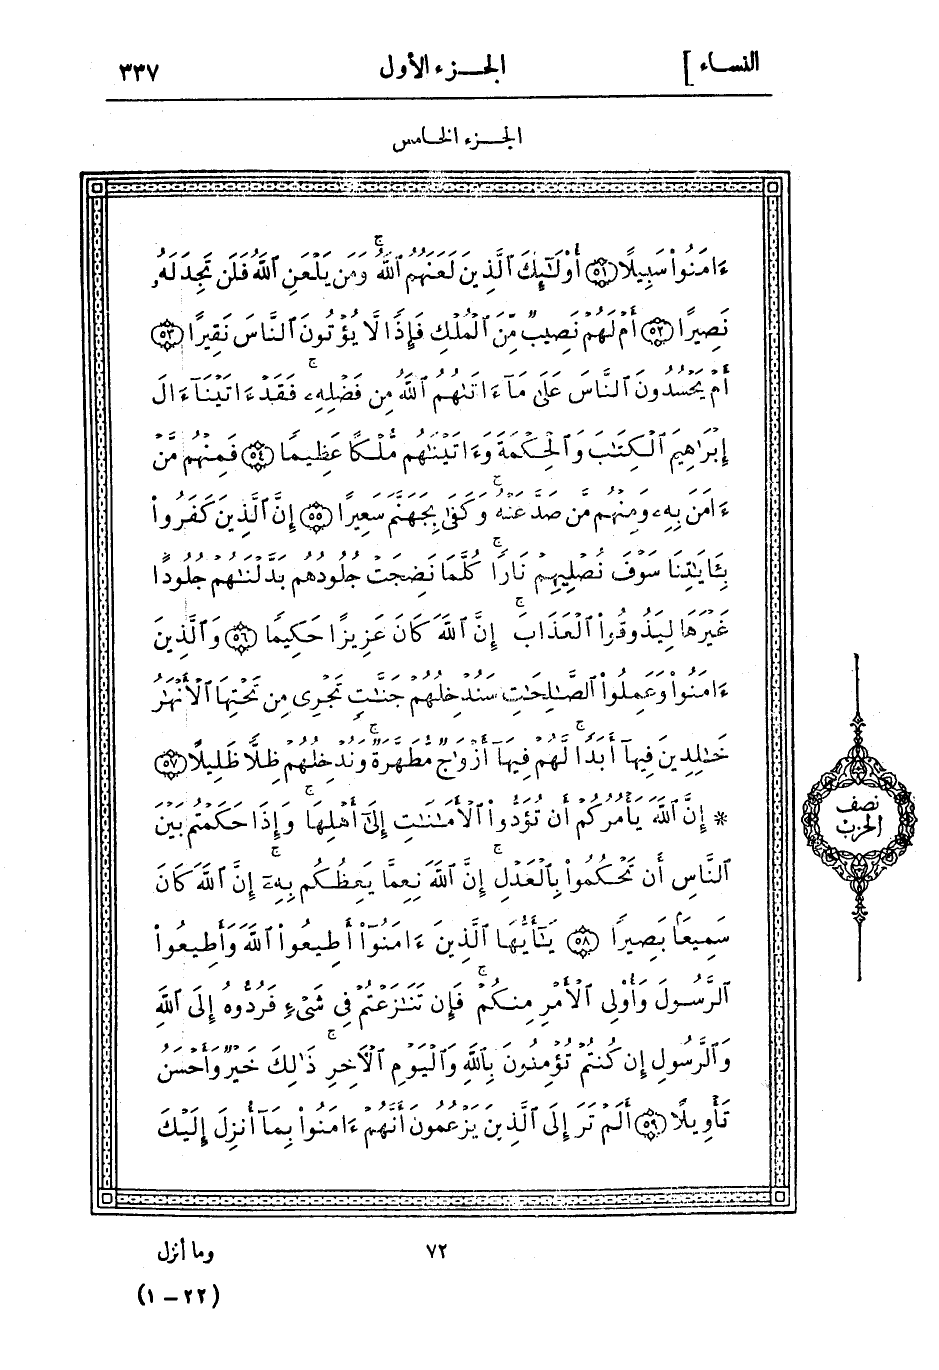 النساء ]
الجزء الأول
٣٣٧
الجزء الخامس
ءَامَنُوا۟ سَبِيلًا ﴿٥١﴾ أُو۟لَـٰٓئِكَ ٱلَّذِينَ لَعَنَهُمُ ٱللَّهُ ۚ وَمَن يَلْعَنِ ٱللَّهُ فَلَن تَجِدَ لَهُۥ
نَصِيرًا ﴿٥٢﴾ أَمْ لَهُمْ نَصِيبٌ مِّنَ ٱلْمُلْكِ فَإِذًا لَّا يُؤْتُونَ ٱلنَّاسَ نَقِيرًا ﴿٥٣﴾
أَمْ يَحْسُدُونَ ٱلنَّاسَ عَلَىٰ مَآ ءَاتَىٰهُمُ ٱللَّهُ مِن فَضْلِهِۦ ۚ فَقَدْ ءَاتَيْنَآ ءَالَ
إِبْرَٰهِيمَ ٱلْكِتَـٰبَ وَٱلْحِكْمَةَ وَءَاتَيْنَـٰهُم مُّلْكًا عَظِيمًا ﴿٥٤﴾ فَمِنْهُم مَّنْ
ءَامَنَ بِهِۦ وَمِنْهُم مَّن صَدَّ عَنْهُ ۚ وَكَفَىٰ بِجَهَنَّمَ سَعِيرًا ﴿٥٥﴾ إِنَّ ٱلَّذِينَ كَفَرُوا۟
بِـَٔايَـٰتِنَا سَوْفَ نُصْلِيهِمْ نَارًا ۚ كُلَّمَا نَضِجَتْ جُلُودُهُم بَدَّلْنَـٰهُمْ جُلُودًا
غَيْرَهَا لِيَذُوقُوا۟ ٱلْعَذَابَ ۚ إِنَّ ٱللَّهَ كَانَ عَزِيزًا حَكِيمًا ﴿٥٦﴾ وَٱلَّذِينَ
ءَامَنُوا۟ وَعَمِلُوا۟ ٱلصَّـٰلِحَـٰتِ سَنُدْخِلُهُمْ جَنَّـٰتٍ تَجْرِى مِن تَحْتِهَا ٱلْأَنْهَـٰرُ
خَـٰلِدِينَ فِيهَآ أَبَدًا ۚ لَّهُمْ فِيهَآ أَزْوَٰجٌ مُّطَهَّرَةٌ ۚ وَنُدْخِلُهُمْ ظِلًّا ظَلِيلًا ﴿٥٧﴾
* إِنَّ ٱللَّهَ يَأْمُرُكُمْ أَن تُؤَدُّوا۟ ٱلْأَمَـٰنَـٰتِ إِلَىٰٓ أَهْلِهَا ۚ وَإِذَا حَكَمْتُم بَيْنَ
ٱلنَّاسِ أَن تَحْكُمُوا۟ بِٱلْعَدْلِ ۚ إِنَّ ٱللَّهَ نِعِمَّا يَعِظُكُم بِهِۦٓ ۚ إِنَّ ٱللَّهَ كَانَ
سَمِيعًا بَصِيرًا ﴿٥٨﴾ يَـٰٓأَيُّهَا ٱلَّذِينَ ءَامَنُوٓا۟ أَطِيعُوا۟ ٱللَّهَ وَأَطِيعُوا۟
ٱلرَّسُولَ وَأُو۟لِى ٱلْأَمْرِ مِنكُمْ ۚ فَإِن تَنَـٰزَعْتُمْ فِى شَىْءٍ فَرُدُّوهُ إِلَى ٱللَّهِ
وَٱلرَّسُولِ إِن كُنتُمْ تُؤْمِنُونَ بِٱللَّهِ وَٱلْيَوْمِ ٱلْـَٔاخِرِ ۚ ذَٰلِكَ خَيْرٌ وَأَحْسَنُ
تَأْوِيلًا ﴿٥٩﴾ أَلَمْ تَرَ إِلَى ٱلَّذِينَ يَزْعُمُونَ أَنَّهُمْ ءَامَنُوا۟ بِمَآ أُنزِلَ إِلَيْكَ
نصف
الحزب
٧٢
وما أنزل
(٢٢ – ١)